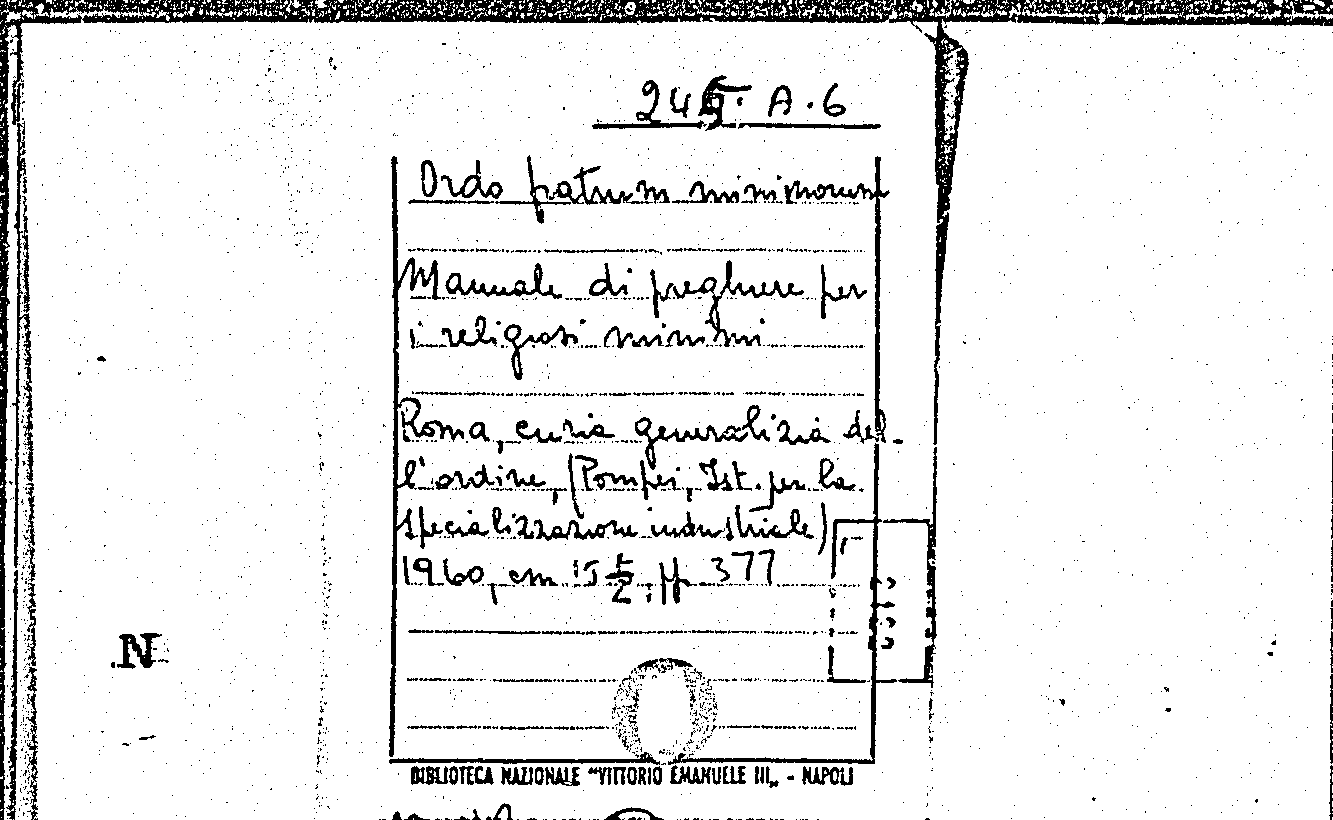 A.6
Ordo patrum minimorum
Manuale di preghiere per
i religiosi minimi
Roma, curia generalizia del-
l'ordine, (Pompei, Ist. per la
specializzazione industriale)
1960, cm 15 pp. 377
N
BIBLIOTECA NAZIONALE "VITTORIO EMANUELE III„ - NAPOLI